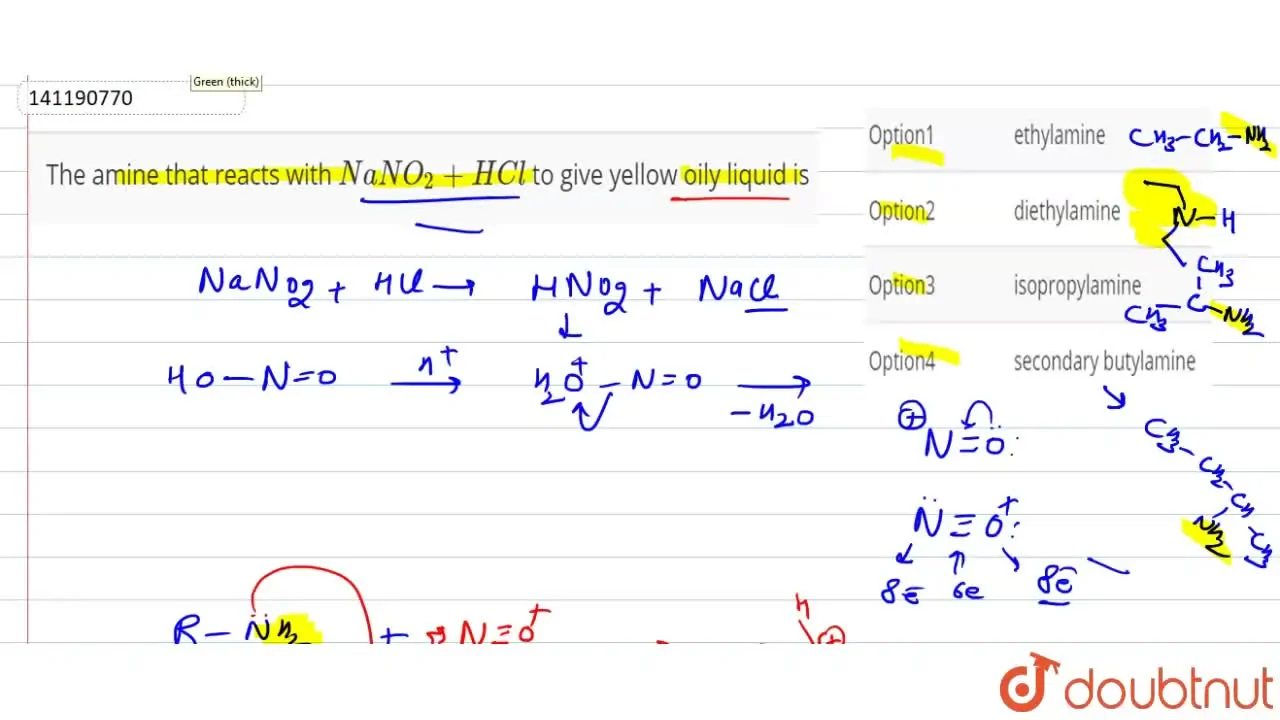 Green (thick)
141190770
The amine that reacts with NaNO₂ + HCl to give yellow oily liquid is
Option1 ethylamine CH₃-CH₂-NH₂
Option2 diethylamine N-H
Option3 isopropylamine CH₃ CH₃-C-NH₂
Option4 secondary butylamine
CH₃-CH₂-CH-CH₃ NH₂
NaNO₂ + HCl → HNO₂ + NaCl
HO-N=O H⁺→ H₂O⁺-N=O → -H₂O
+ N=O:
N≡O⁺:
8e⁻ 6e 8e⁻
R-NH₂ + N≡O⁺
H +
doubtnut